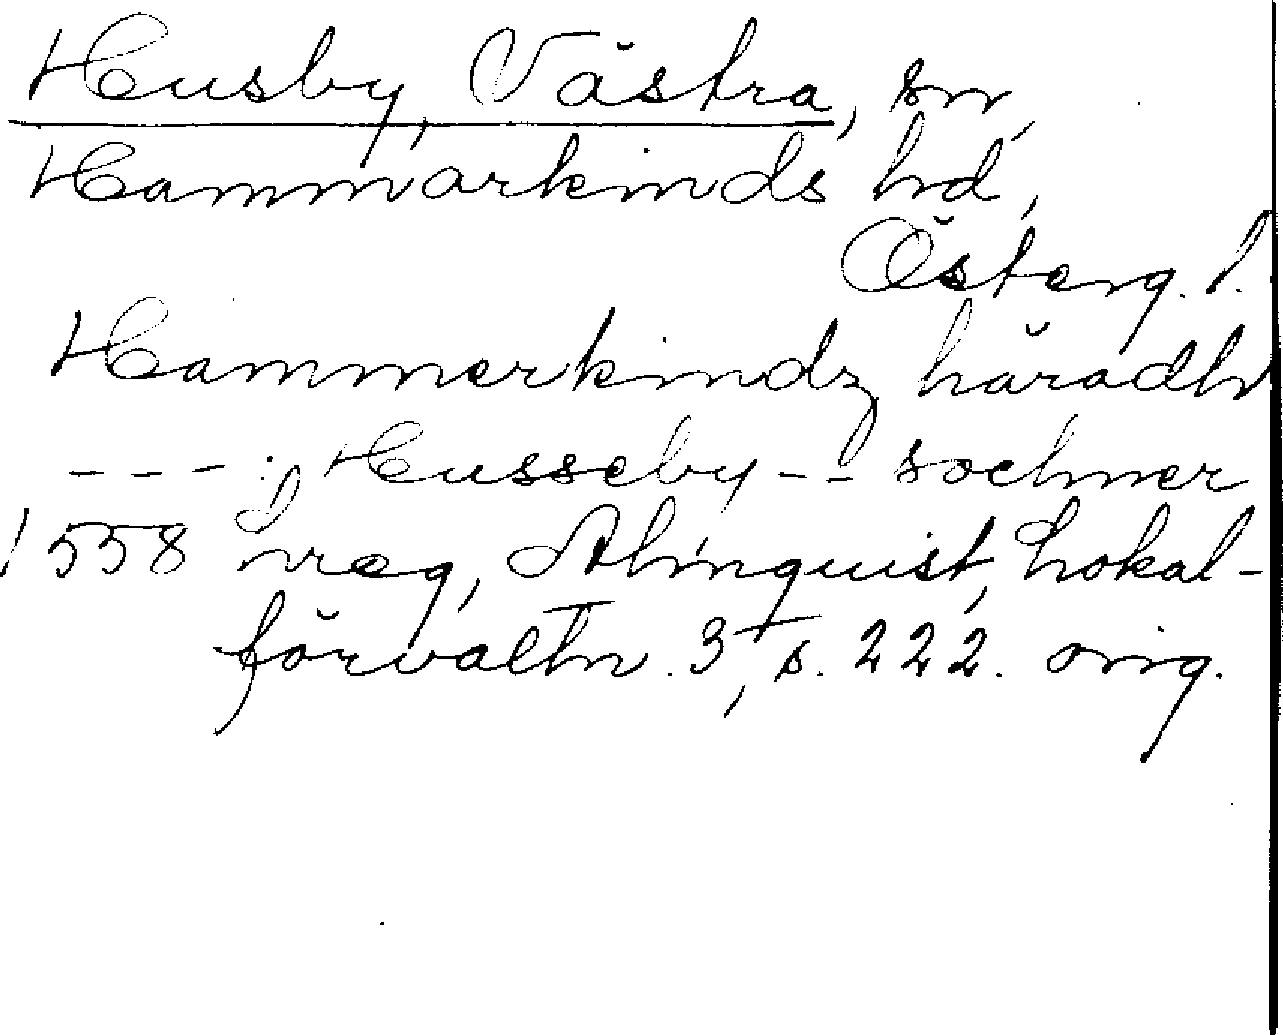 Husby, Västra, sn,
Hammarkinds hd,
Österg. l.
Hammerkindz häradh
--- j Husseby -- sochner
1558 vreg, Almquist, Lokal-
förvaltn. 3, s. 222. orig.